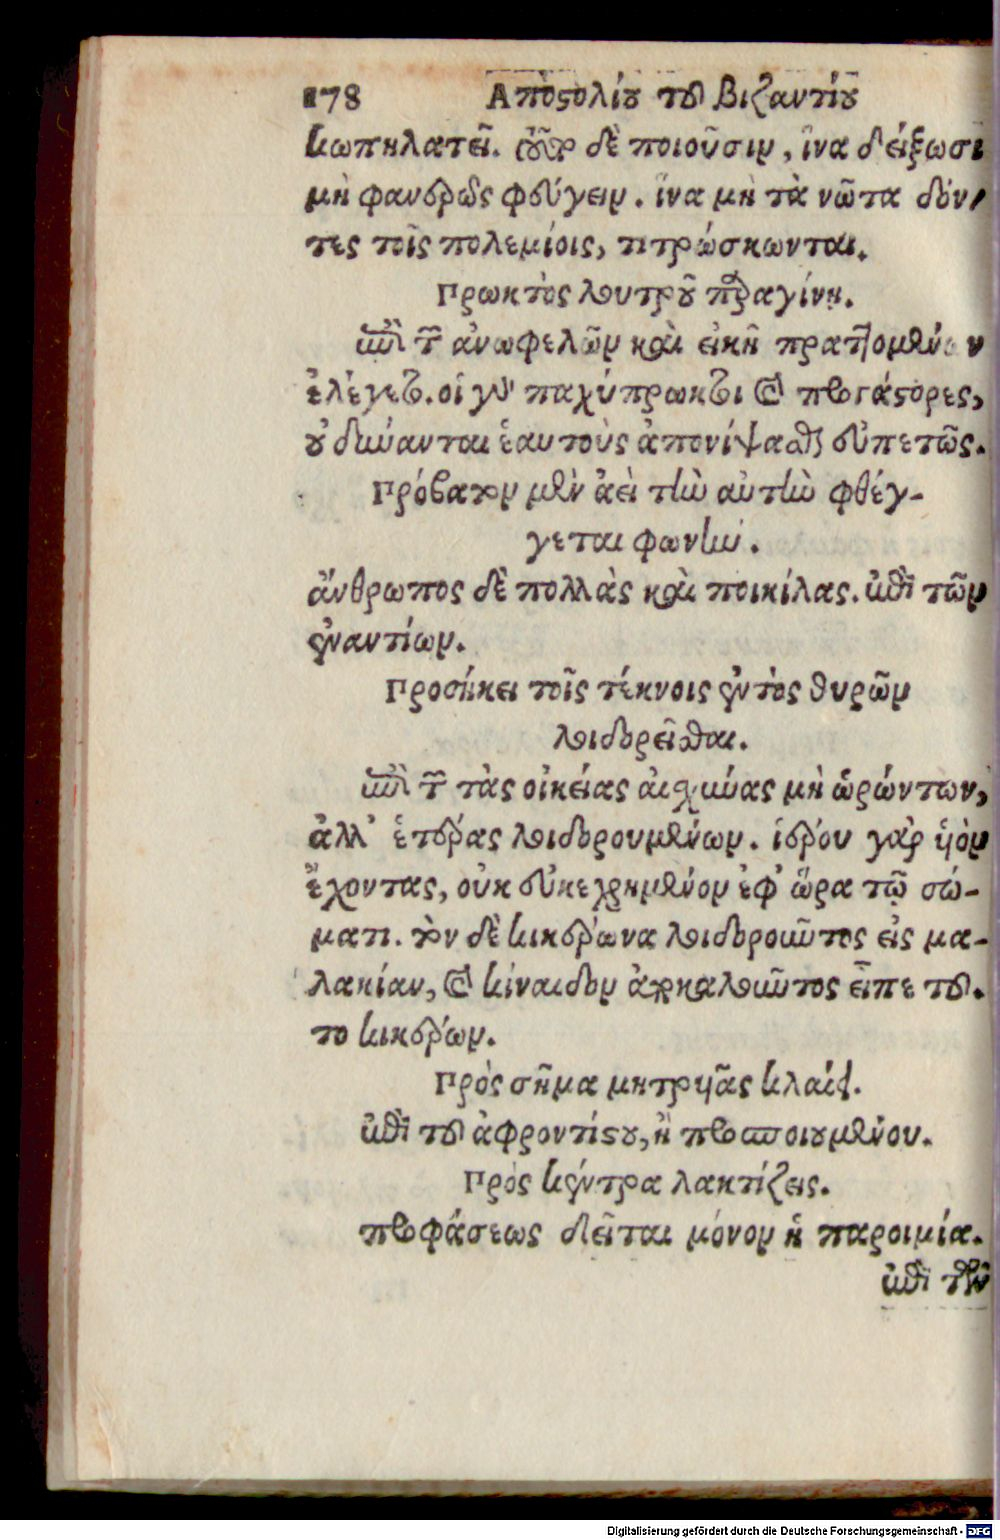 178 Ἀποστολίου τοῦ βιζαντίου
κωπηλατεῖ. οὗτοι δὲ ποιοῦσιν, ἵνα δείξωσι
μὴ φανερῶς φεύγειν. ἵνα μὴ τὰ νῶτα δόν-
τες τοῖς πολεμίοις, τιτρώσκωνται.
Πρωκτὸς λουτροῦ περιγίνη.
ἐπὶ τῶν ἀνωφελῶν καὶ εἰκῆ πραττομένων
ἐλέγετο. οἱ γὰρ παχύπρωκτοι καὶ προγάστορες,
οὐ δύνανται ἑαυτοὺς ἀπονίψασθαι εὐπετῶς.
Πρόβατον μὲν ἀεὶ τὴν αὐτὴν φθέγ-
γεται φωνήν.
ἄνθρωπος δὲ πολλὰς καὶ ποικίλας. ἐπὶ τῶν
ἐναντίων.
Προσήκει τοῖς τέκνοις ἐντὸς θυρῶν
λοιδορεῖσθαι.
ἐπὶ τῶν τὰς οἰκείας αἰσχύνας μὴ ὁρώντων,
ἀλλ' ἑτέρας λοιδορουμένων. ἱέρου γὰρ υἱὸν
ἔχοντας, οὐκ εὖ κεχρημένον ἐφ' ὥρα τῷ σώ-
ματι. τὸν δὲ κικέρωνα λοιδοροῦντος εἰς μα-
λακίαν, καὶ κίναιδον ἀποκαλοῦντος εἶπε τοῦ-
το κικέρων.
Πρὸς σῆμα μητρυιᾶς κλαίει.
ἐπὶ τοῦ ἀφροντίστου, ἢ προσποιουμένου.
Πρὸς κέντρα λακτίζεις.
προφάσεως δεῖται μόνον ἡ παροιμία.
ἐπὶ τῶν
Digitalisierung gefördert durch die Deutsche Forschungsgemeinschaft - DFG